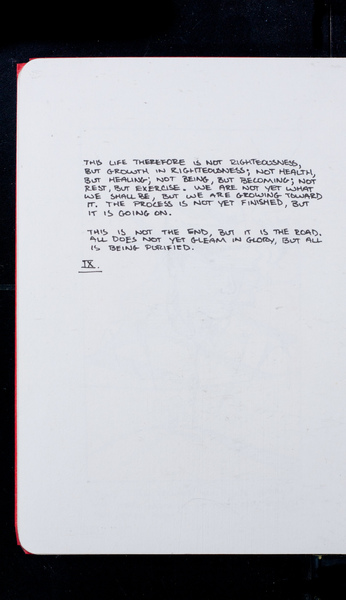 THIS LIFE THEREFORE IS NOT RIGHTEOUSNESS,
BUT GROWTH IN RIGHTEOUSNESS; NOT HEALTH,
BUT HEALING; NOT BEING, BUT BECOMING; NOT
REST, BUT EXERCISE. WE ARE NOT YET WHAT
WE SHALL BE, BUT WE ARE GROWING TOWARD
IT. THE PROCESS IS NOT YET FINISHED, BUT
IT IS GOING ON.
THIS IS NOT THE END, BUT IT IS THE ROAD.
ALL DOES NOT YET GLEAM IN GLORY, BUT ALL
IS BEING PURIFIED.
IX.